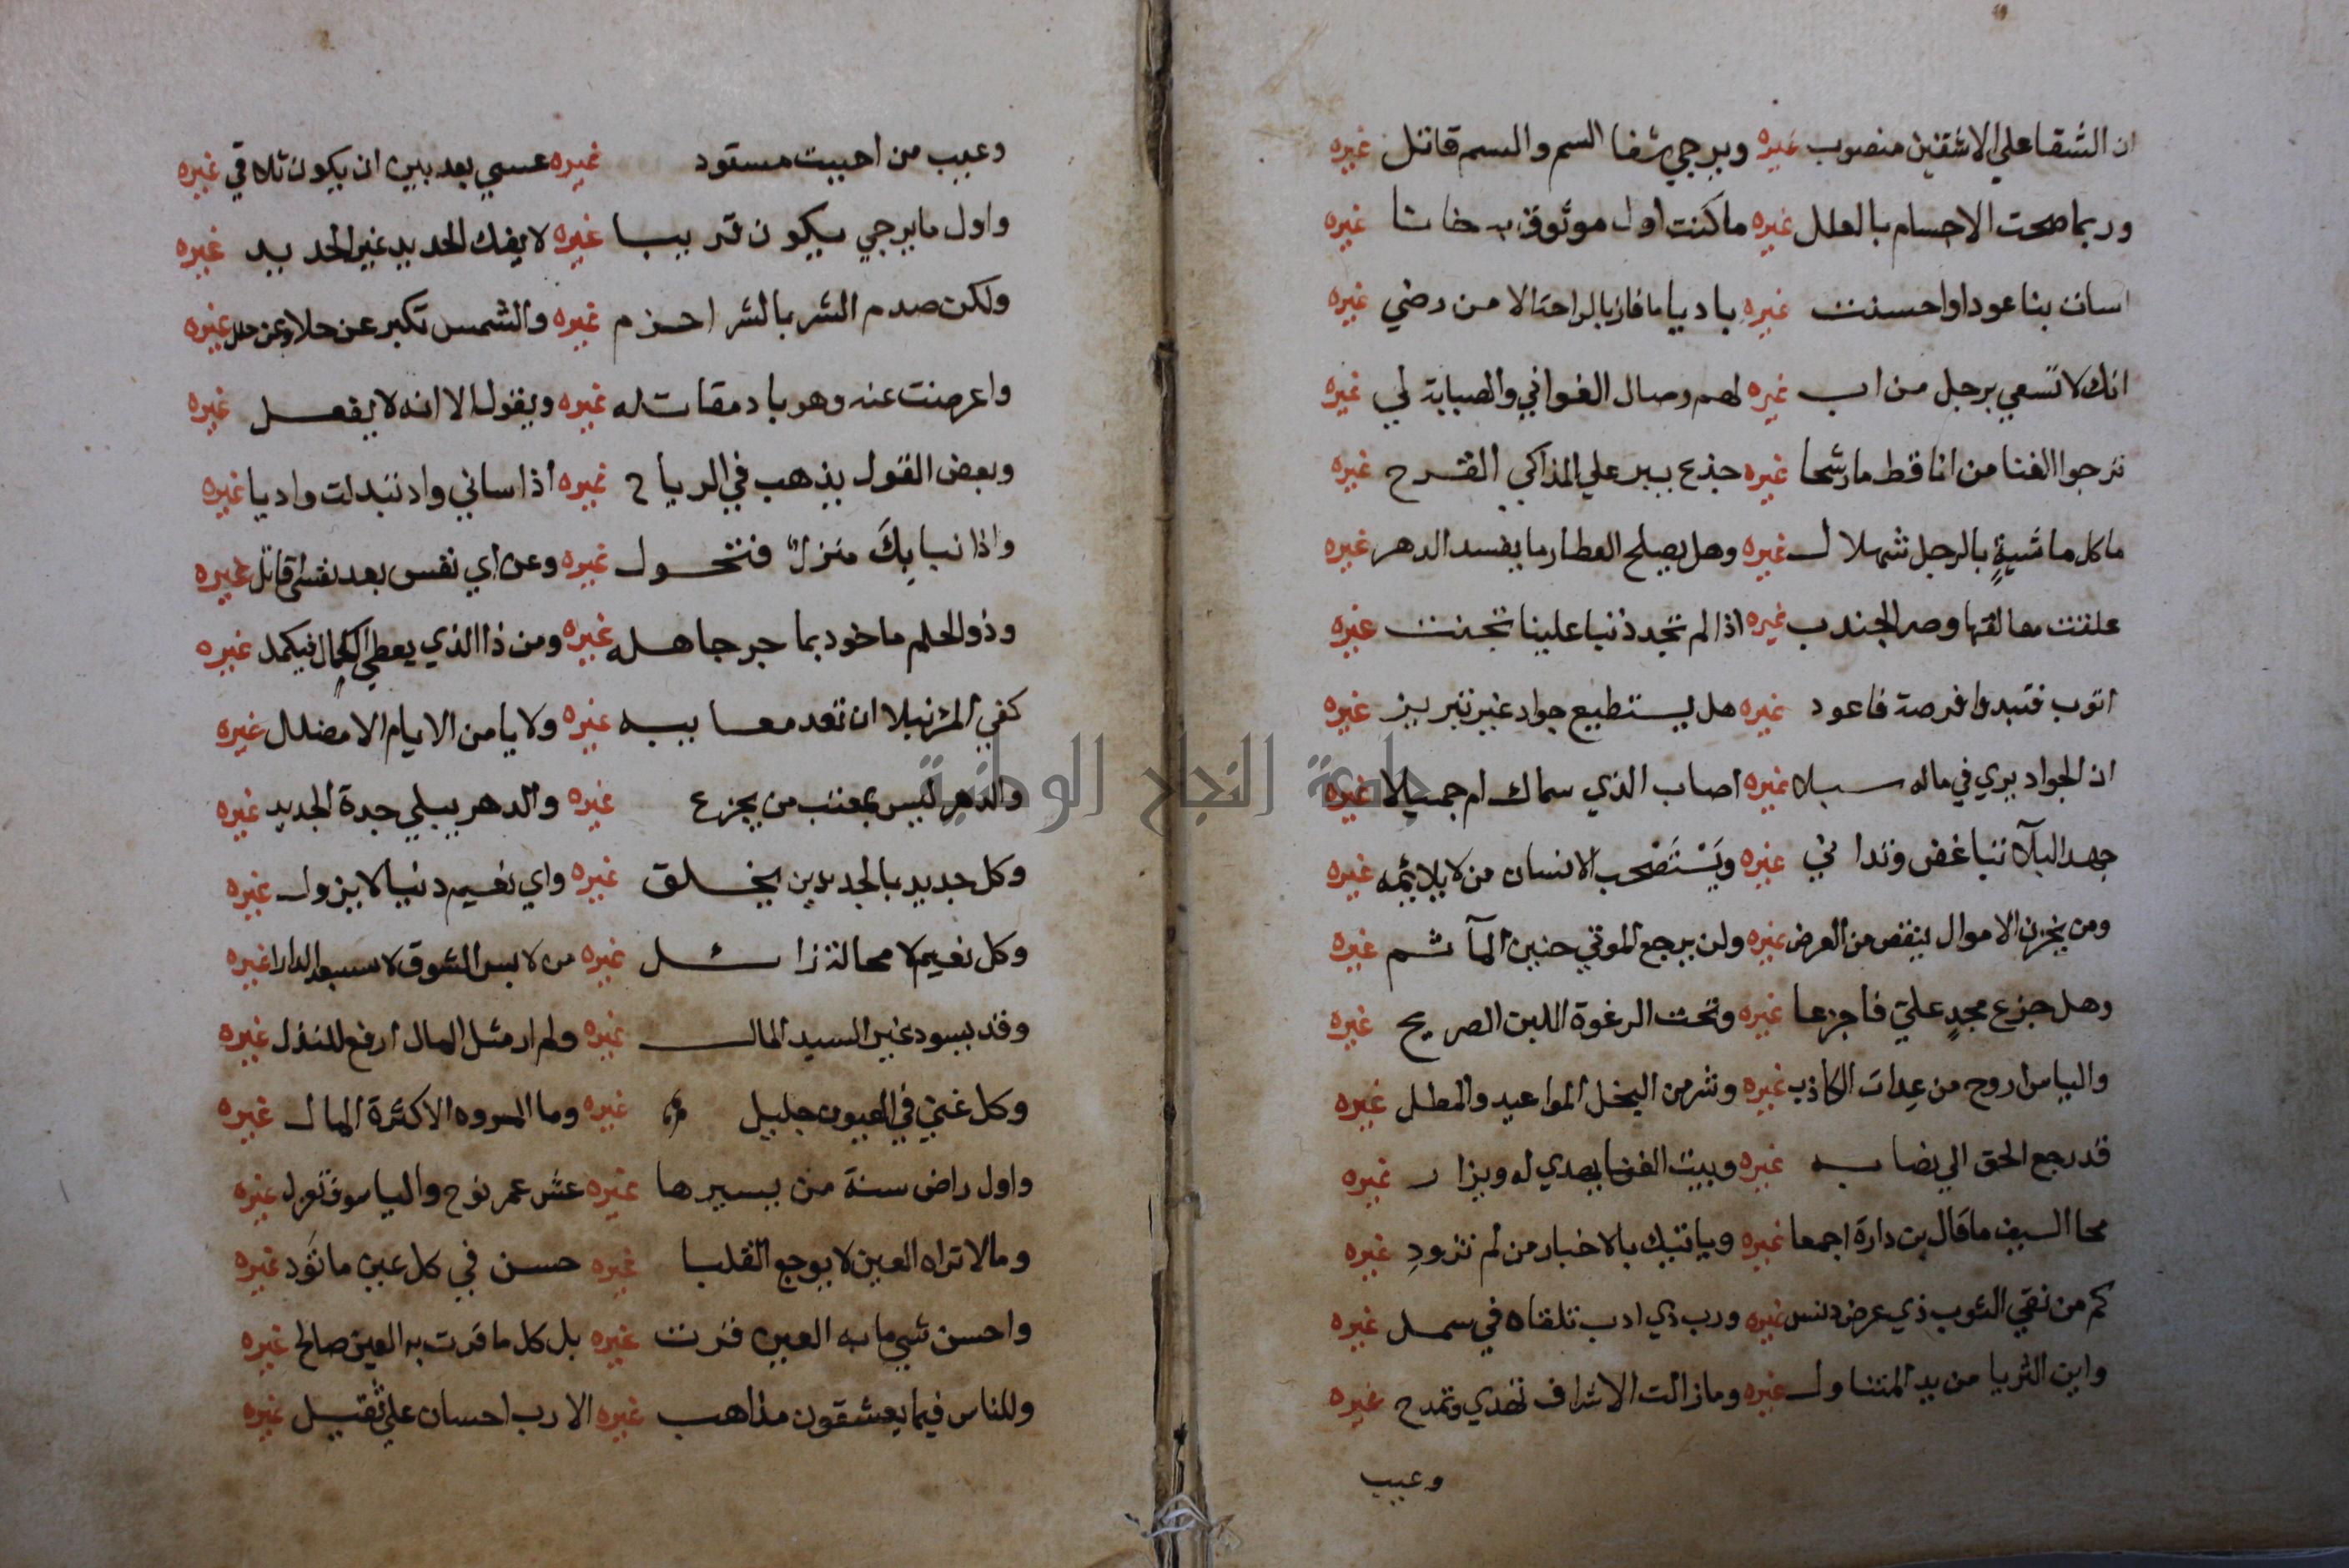 ان الشقا علي الاشقين منصوب غيره ويرجي شفا السم والسم قاتل غيره
وربما صحت الاجسام بالعلل غيره ما كنت اول موثوق به خانا غيره
اسات بنا عودا واحسنت غيره باديا ما فاز بالراحة الا من رضي غيره
انك لا تسعي برجل من اب غيره لهم وصال الغواني والصبابة لي غيره
نرجوا الغنا من انا قط ما رشحا غيره جذع يبر علي المذاكي القرح غيره
ما كل ماشية بالرجل شملال غيره وهل يصلح العطار ما يفسد الدهر غيره
علقت معالقها وصر الجندب غيره اذا لم تجد ذنبا علينا تجنت غيره
اتوب فتبدوا فرصة فاعود غيره هل يستطيع جواد غير تبريز غيره
ان الجواد يري في ماله سبلا غيره اصاب الذي سماك ام جميلا غيره
جهد البلآ تباغض وتداني غيره ويستصحب الانسان من لا يلائمه غيره
ومن يخزن الاموال ينفق من العرض غيره ولن يرجع الموتي حنين المآتم غيره
وهل جزع مجد علي فاجزعا غيره وتحت الرغوة اللبن الصريح غيره
والياس اروح من عدات الكاذب غيره وشر من البخل المواعيد والمطل غيره
قد رجع الحق الي نصابه غيره وبيت الغنا يهدي له ويزار غيره
محا السيف ما قال بن دارة اجمعا غيره وياتيك بالاخبار من لم تزود غيره
كم من نقي الثوب ذي عرض دنس غيره ورب ذي ادب تلقاه في سمل غيره
واين الثريا من يد المتناول غيره وما زالت الاشراف تهدي وتمدح غيره
وعيب
وعيب من احببت مستود غيره عسي بعد بين ان يكون تلاقي غيره
واول ما يرجي يكون قريبا غيره لا يفك الحديد غير الحديد غيره
ولكن صدم الشر بالشر احزم غيره والشمس تكبر عن حلا وعن حلل غيره
واعرضت عنه وهو باد مقاتله غيره ويقول الا انه لا يفعل غيره
وبعض القول يذهب في الرياح غيره اذا ساني واد تبدلت واديا غيره
واذا نبا بك منزل فتحول غيره وعن اي نفس بعد نفسي قاتل غيره
وذو الحلم ماخود بما جر جاهله غيره ومن ذا الذي يعطي الكمال فيكمل غيره
كفي المرٔ نبلا ان تعد معايبه غيره ولا يامن الايام الا مضلل غيره
والدهر ليس بمعتب من يجزع غيره والدهر يبلي جدة الجديد غيره
وكل جديد بالجديدين يخلق غيره واي نعيم دنيا لا يزول غيره
وكل نعيم لا محالة زائل غيره من لابس الشوق لا الدارا غيره
وقد يسود غير السيد المال غيره ولم ار مثل المال ارفع للنذل غيره
وكل غني في العيون جليل غيره وما المروه الا كثرة المال غيره
واول راض سنة من يسيرها غيره عش عمر نوح والياس غيره
وما لا تراه العين لا يوجع القلبا غيره حسن في كل عين ما تود غيره
واحسن شيي ما به العين قرت غيره بل كل ما قرت به العين صالح غيره
وللناس فيما يعشقون مذاهب غيره الا رب احسان علي ثقيل غيره
جامعة النجاح الوطنية